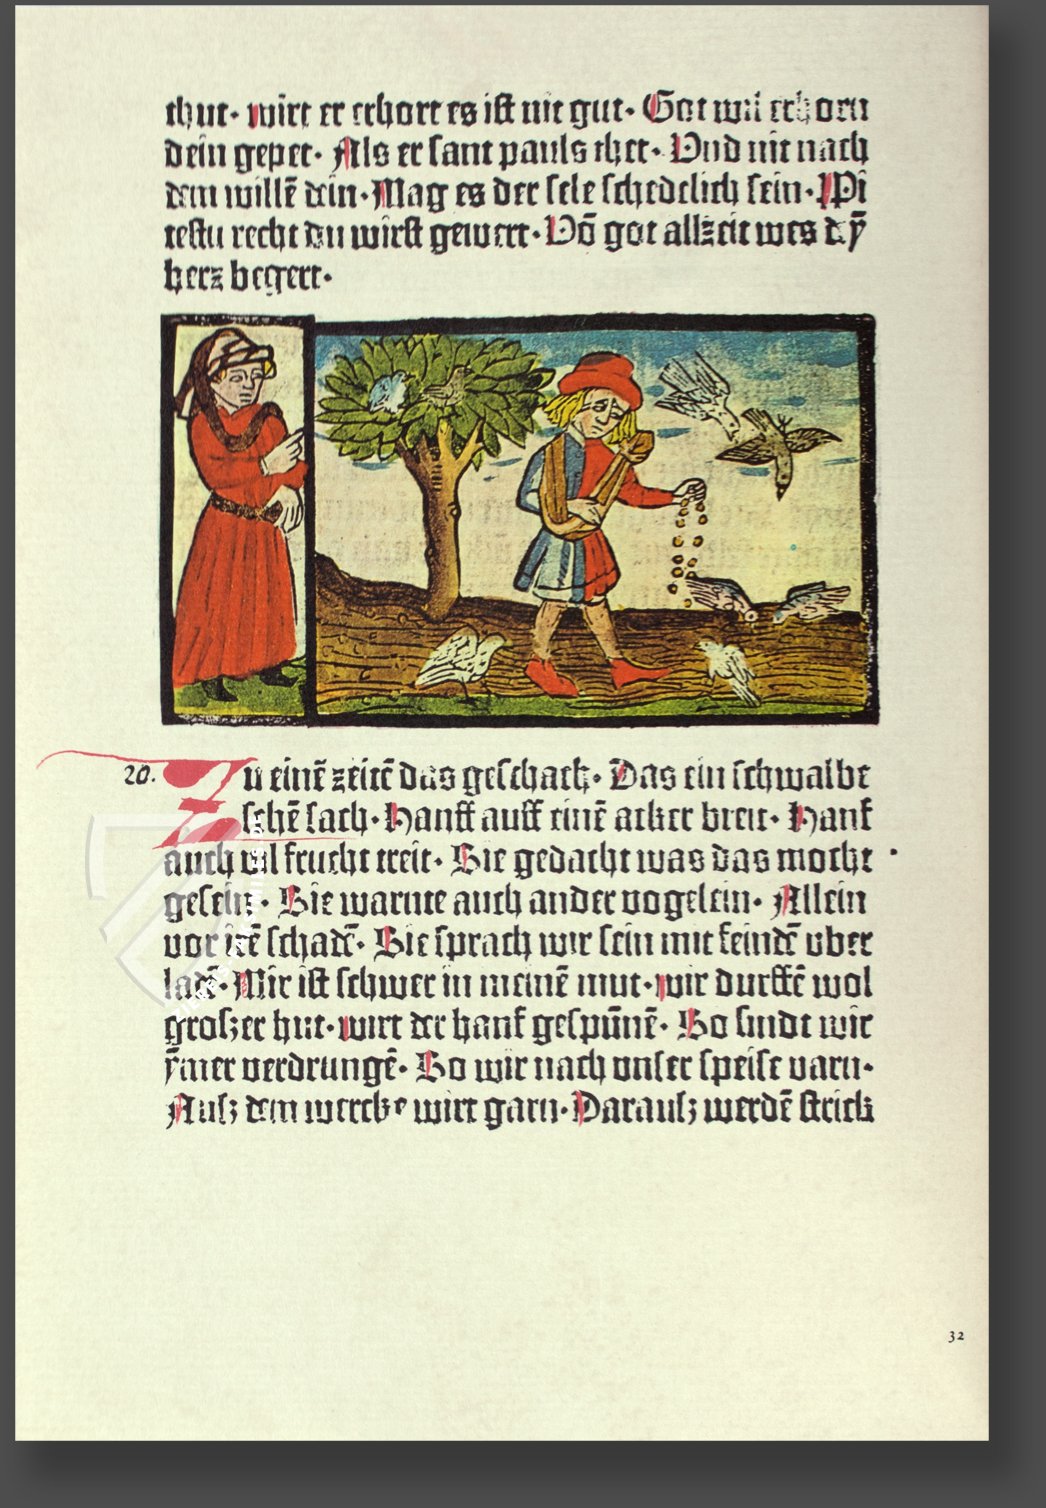 thut· wirt er erhort es ist nit gut· Got wil erhorn
dein gepet· Als er sant pauls thet· Vnd nit nach
dem willē dein· Mag es der sele schedelich sein· Wi
testu recht du wirst gewert· Vō got allzeit wes dȳ
herz begert·
20. Zu einē zeitē das geschach· Das ein schwalbe
sehē sach· Hanff auff einē acker breit· Hanf
auch vil frucht treit· Sie gedacht was das mocht
gesein· Sie warnte auch ander vogelein· Allein
vor irē schadē· Sie sprach wir sein mit feindē vber
ladē· Mir ist schwer in meinē mut· wir durffē wol
groszer hut· wirt der hanf gespūnē· So sindt wir
ȳmer verdrungē· So wir nach vnser speise varn·
Ausz dem wercke wirt garn· Darausz werdē strick
32